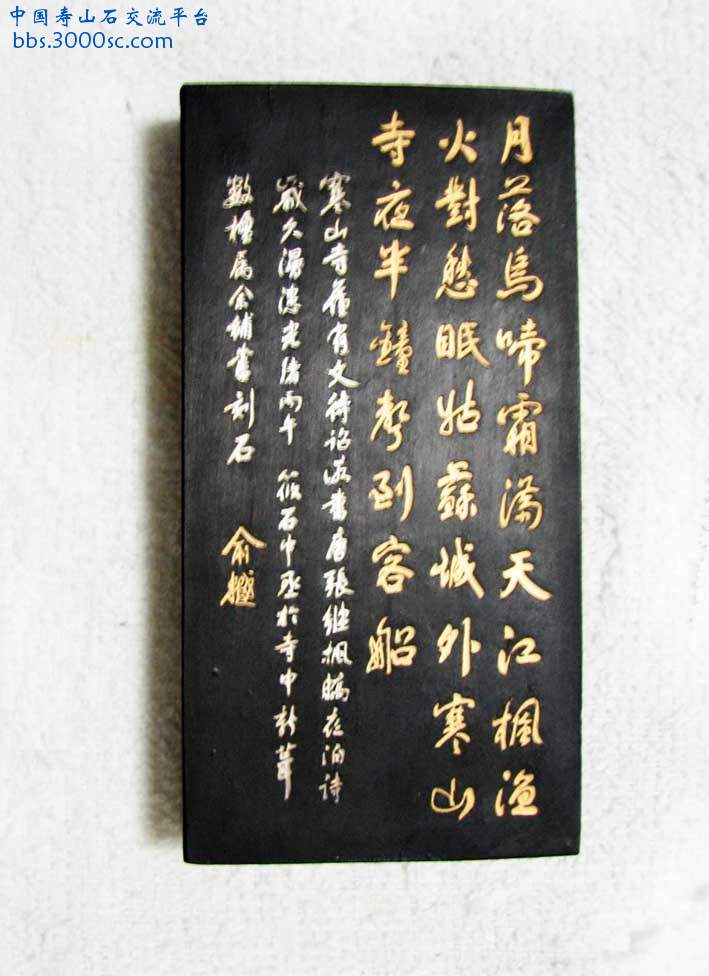 中国寿山石交流平台
bbs.3000sc.com
月落烏啼霜滿天江楓漁
火對愁眠姑蘇城外寒山
寺夜半鐘聲到客船
寒山寺舊有文待詔所書唐張繼楓橋夜泊詩
歲久漫漶光緒丙午 筱石中丞於寺中新葺
數楹屬余補書刻石 俞樾